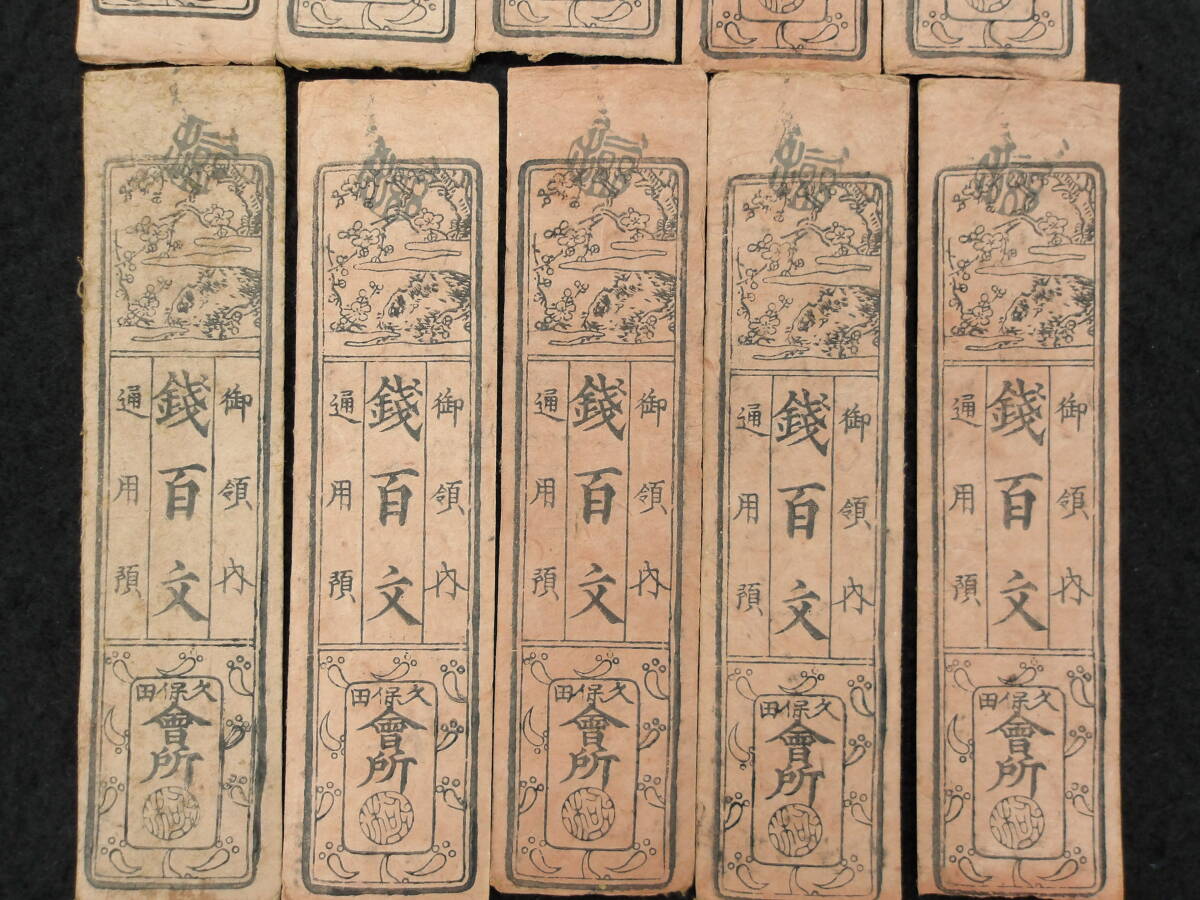 御領内
錢百文
通用預
久保田
會所
御領内
錢百文
通用預
久保田
會所
御領内
錢百文
通用預
久保田
會所
御領内
錢百文
通用預
久保田
會所
御領内
錢百文
通用預
久保田
會所